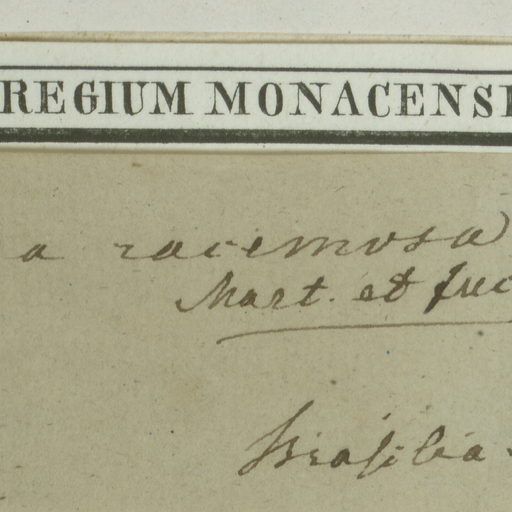 REGIUM MONACENSI
a racemosa
Mart. et Zuc
Brasilia.